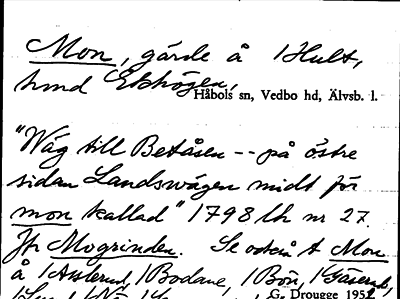 Mon, gärde å /Hult,
hmd Ekhögen,
Håbols sn, Vedbo hd, Älvsb. l.
"Wäg till Betåsen -- på östre
sidan Landswägen midt för
mon kallad" 1798 lh nr 27.
Jfr Mogrinden. Se också t Mon
å /Asslerud, /Bodane, /Bön, /Gäserud,
G. Drougge 1952